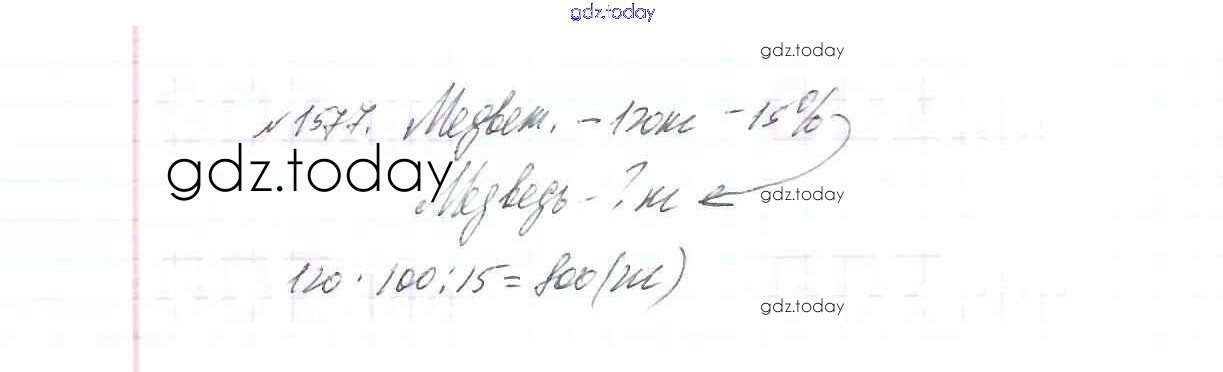 gdz.today
gdz.today
№1577. Медвеж. – 120 кг – 15%
gdz.today
Медведь – ? кг
gdz.today
120 · 100 : 15 = 800 (кг)
gdz.today